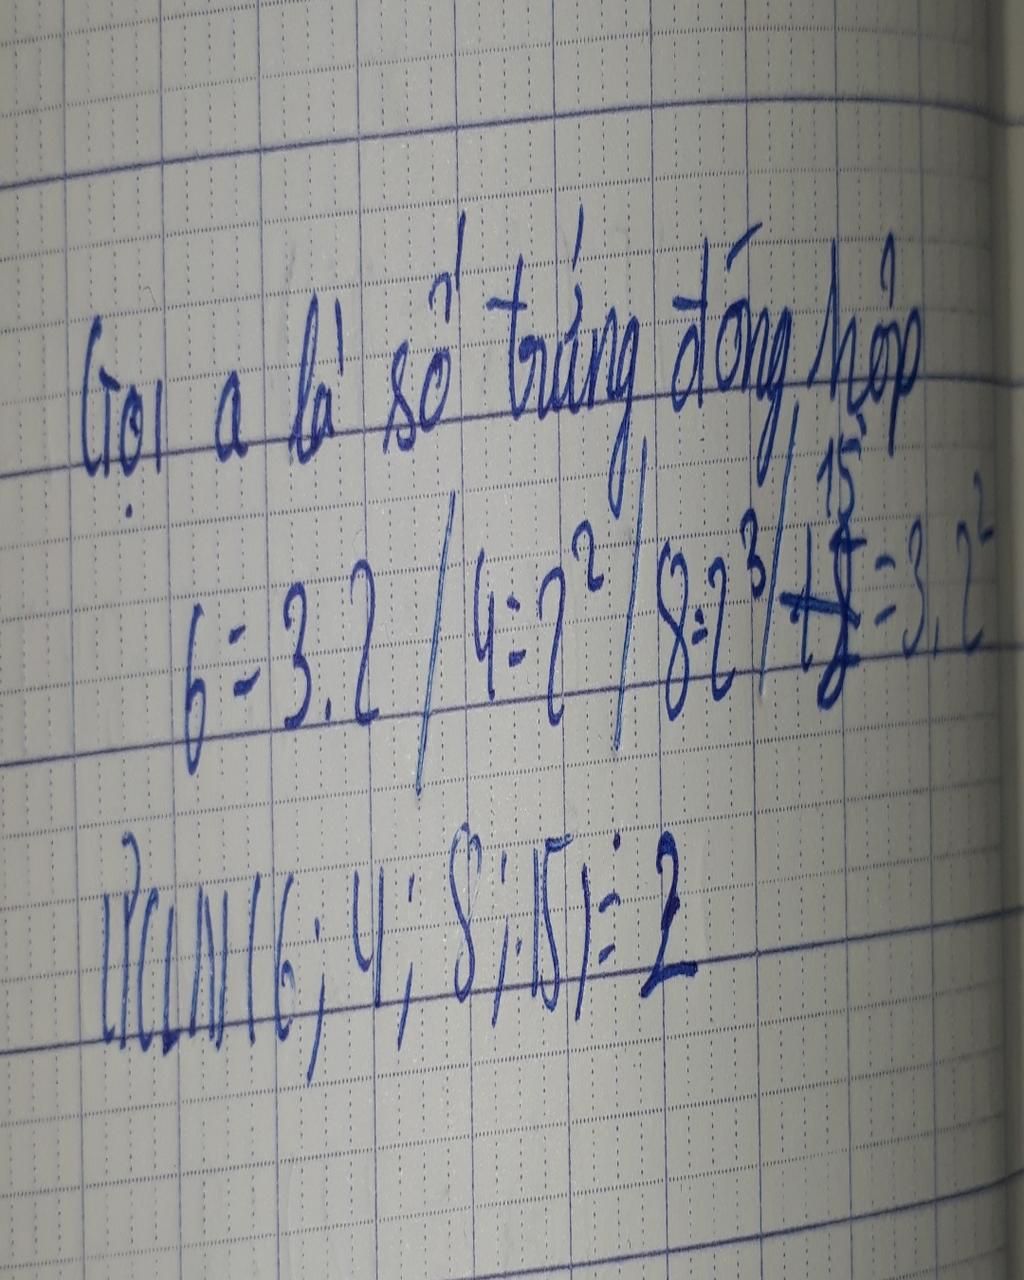 Gọi a là số trứng đóng hộp
6 = 3.2 / 4 = 2² / 8 = 2³ / 15 = 3.2²
ƯCLN (6; 4; 8; 15) = 2